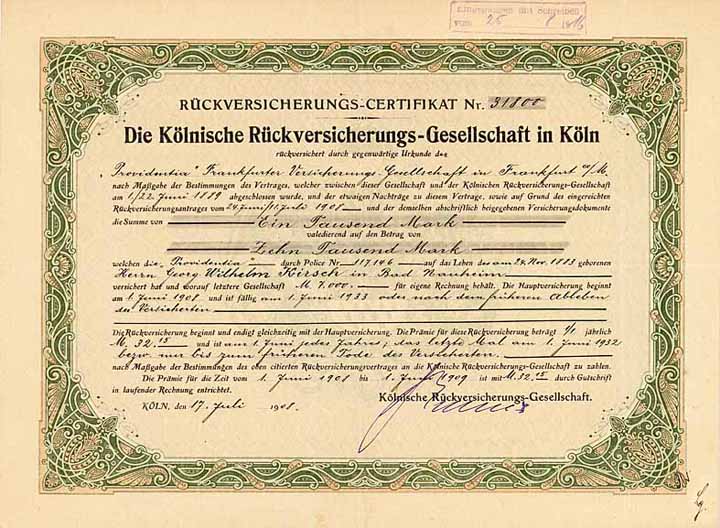 vom 26 8 1916
RÜCKVERSICHERUNGS-CERTIFIKAT Nr. 31800
Die Kölnische Rückversicherungs-Gesellschaft in Köln
rückversichert durch gegenwärtige Urkunde der
„Providentia" Frankfurter Versicherungs-Gesellschaft in Frankfurt a/M.
nach Maßgabe der Bestimmungen des Vertrages, welcher zwischen dieser Gesellschaft und der Kölnischen Rückversicherungs-Gesellschaft
am 1/22. Juni 1889 abgeschlossen wurde, und der etwaigen Nachträge zu diesem Vertrage, sowie auf Grund des eingereichten
Rückversicherungsantrages vom 24 Juni/11. Juli 1908 und der demselben abschriftlich beigegebenen Versicherungsdokumente
die Summe von Ein Tausend Mark
valedierend auf den Betrag von
Zehn Tausend Mark
welchen die „Providentia" durch Police Nr. 117,146 auf das Leben des am 24. Nov. 1883 geborenen
Herrn Georg Wilhelm Kirsch in Bad Nauheim
versichert hat und worauf letztere Gesellschaft M. 7,000. für eigene Rechnung behält. Die Hauptversicherung beginnt
am 1. Juni 1908 und ist fällig am 1. Juni 1933 oder nach dem früheren Ableben
des Versicherten
Die Rückversicherung beginnt und endigt gleichzeitig mit der Hauptversicherung. Die Prämie für diese Rückversicherung beträgt 1/1 jährlich
M. 32.15 und ist am 1. Juni jedes Jahres; das letzte Mal am 1. Juni 1932
bezw. nur bis zum früheren Tode des Versicherten.
nach Maßgabe der Bestimmungen des oben citierten Rückversicherungsvertrages an die Kölnische Rückversicherungs-Gesellschaft zu zahlen.
Die Prämie für die Zeit vom 1. Juni 1908 bis 1. Juni 1909 ist mit M. 32.15 durch Gutschrift
in laufender Rechnung entrichtet.
Kölnische Rückversicherungs-Gesellschaft.
KÖLN, den 17. Juli 1908.